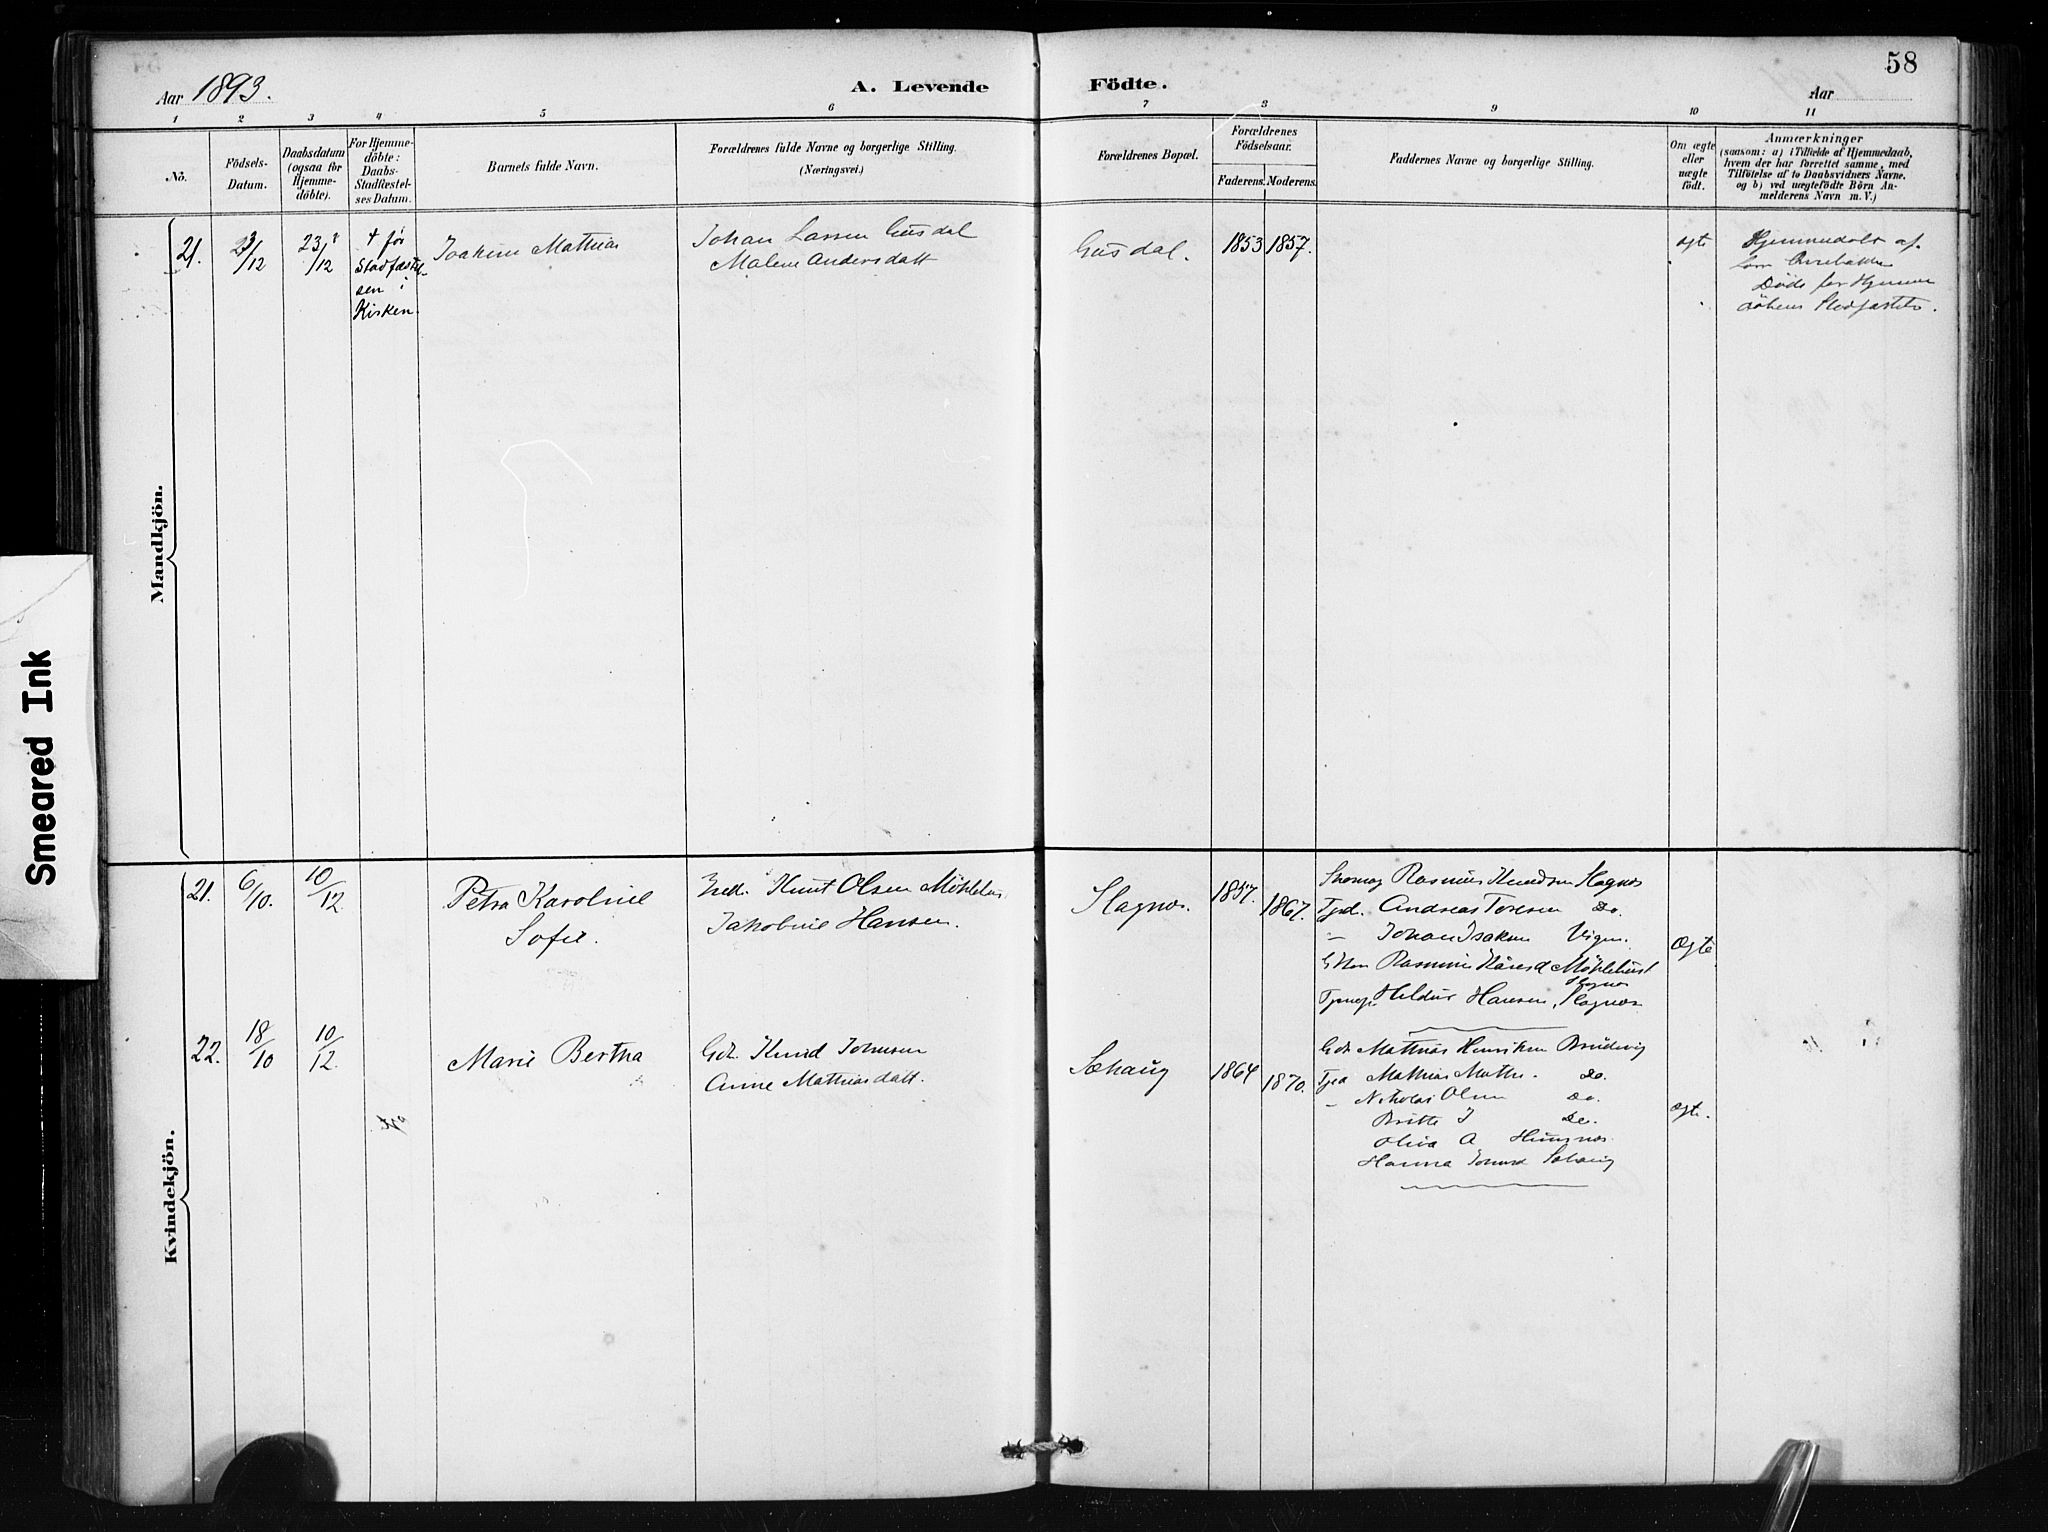 58
Aar 1893.
A. Levende Födte.
Aar
1 2 3 4 5 6 7 8 9 10 11
No.
Födsels-
Datum.
Daabsdatum
(ogsaa for
Hjemme-
döbte).
For Hjemme-
döbte:
Daabs-
Stadfæstel-
ses Datum.
Barnets fulde Navn.
Forældrenes fulde Navne og borgerlige Stilling.
(Næringsvei.)
Forældrenes Bopæl.
Forældrenes
Födselsaar.
Faderens. Moderens.
Faddernes Navne og borgerlige Stilling.
Om ægte
eller
uægte
født.
Anmærkninger
(saasom: a) i Tilfælde af Hjemmedaab,
hvem der har forrettet samme, med
Tilföielse af to Daabsvidners Navne,
og b) ved uægtefödte Börn An-
melderens Navn m. V.)
Mandkjön.
21.
/12
23/12
† før
Stadfæstel-
sen i
Kirken.
Joakim Mathias
Johan Larsen Gusdal
Malene Andersdatt
Gusdal.
1853 1857.
ægte
Hjemmedøbt af
Død før Hjemme
Kvindekjön.
21.
6/10.
10/12
Petra Karoline
Sofie.
Knut Olsen
Jakobine Hansen.
Hagnæs.
1857.
1867.
Rasmus Knudsen Hagnæs
Tjed. Andreas Do.
– Johan Isaksen
Rasmus
Hildur Hansen, Hagnæs
Ægte
22.
18/10
10/12.
Marie Bertha
Gdr. Knud Johnsen
Anne Mathiasdatt.
Sæhaug
1864
1870.
Gdr Mathias Henriksen Brudevig
Tjed Mathias Do.
– Nikolai Olsen Do.
Britte J Do.
Oliva A
Hanna Sæhaug
Ægte.
Smeared Ink